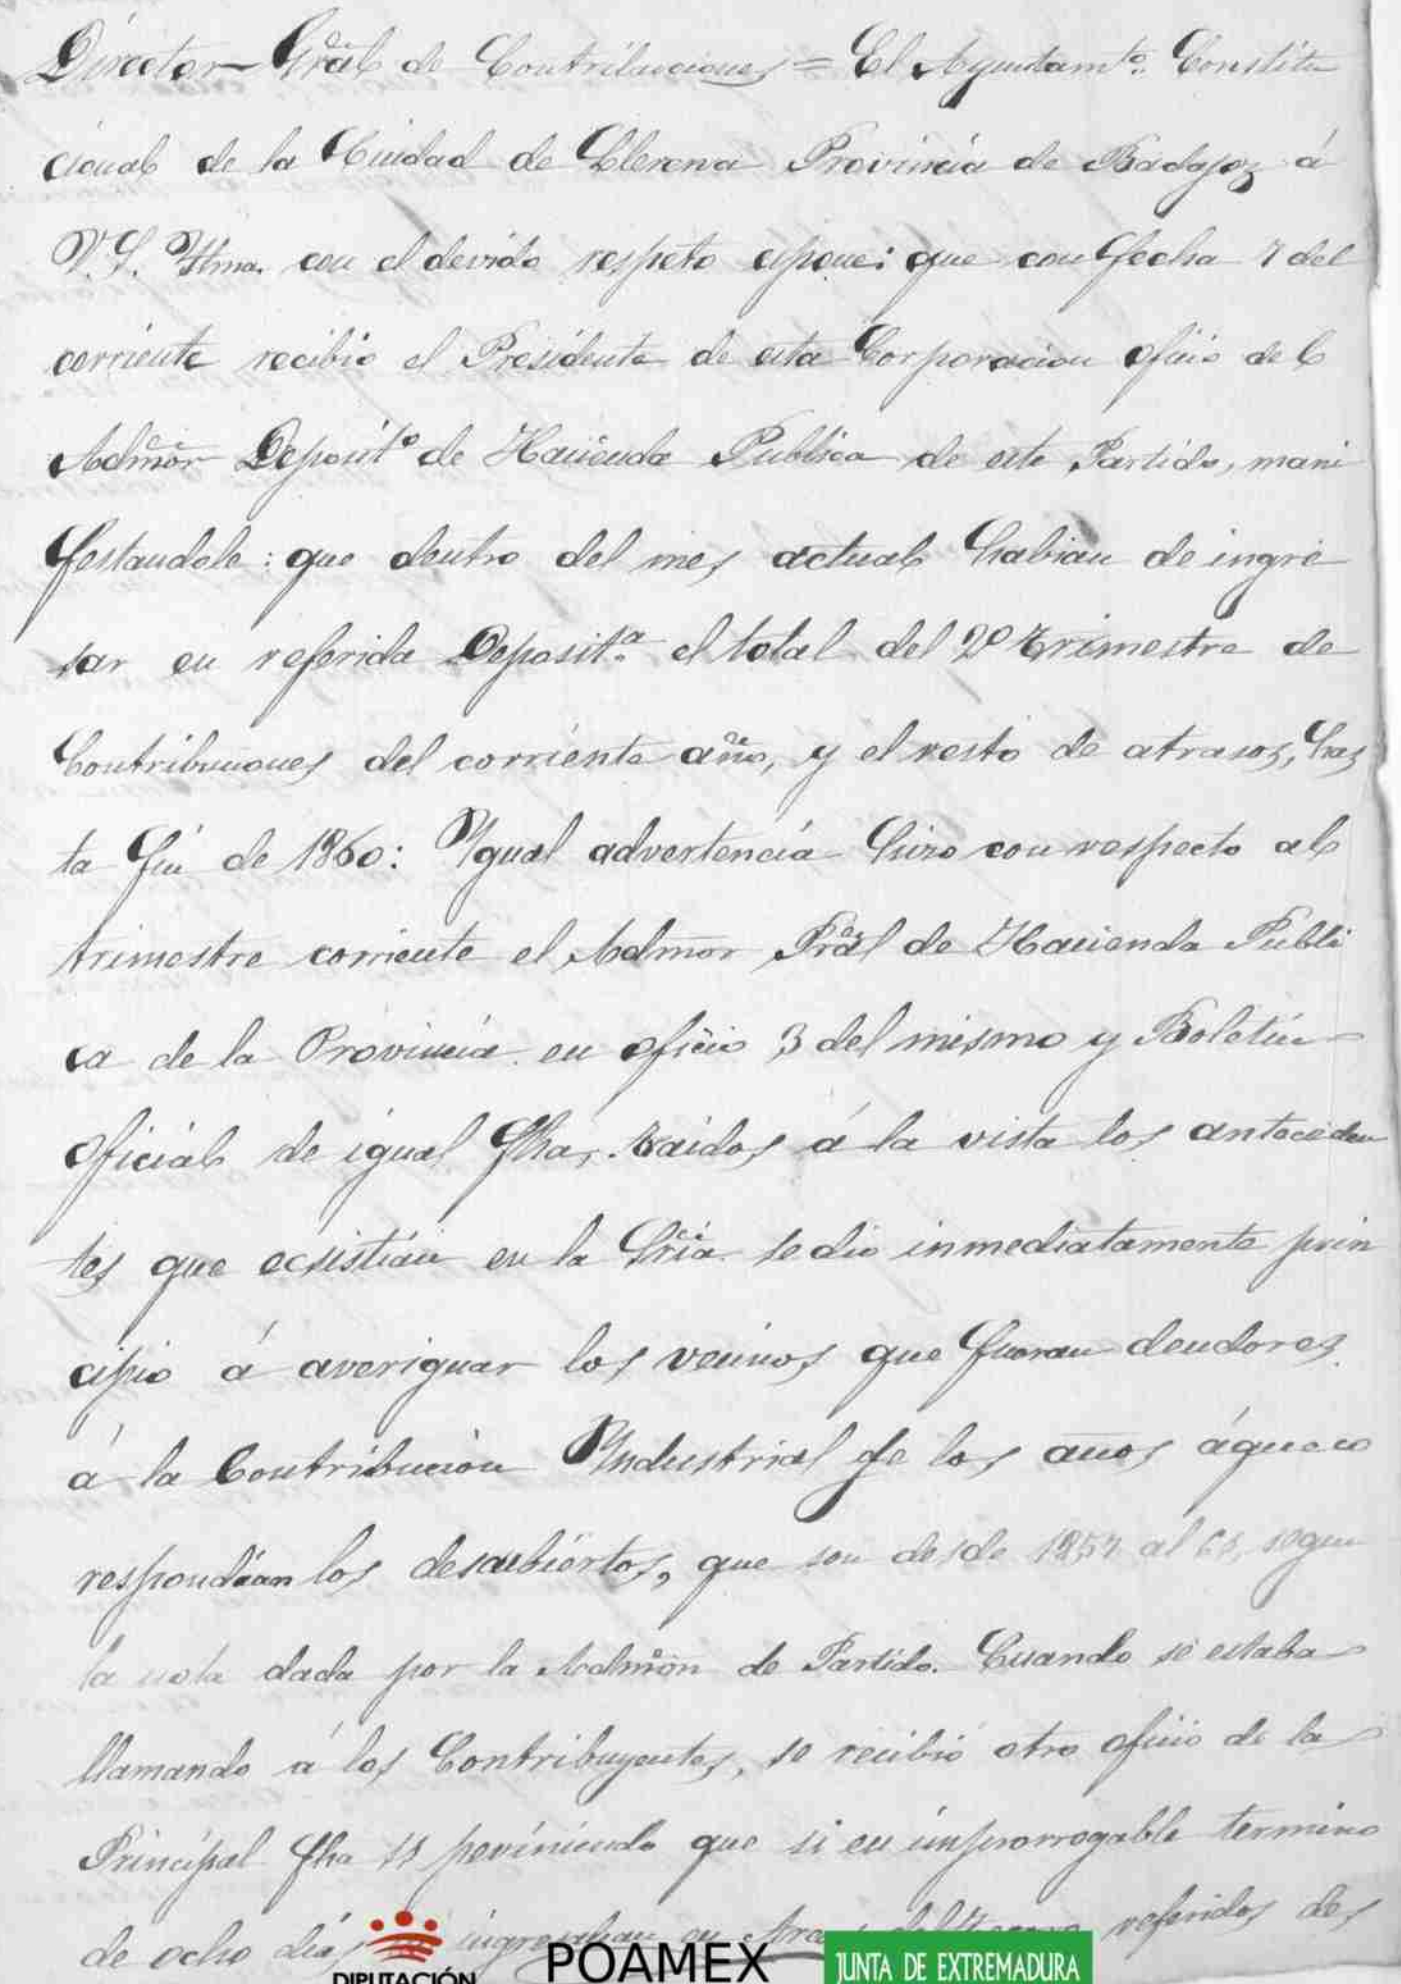 Director Gral de Contribuciones = El Ayuntamto. Constitu
cional de la Ciudad de Llerena Provincia de Badajoz á
V.S. Iltma. con el devido respeto espone: que con fecha 7 del
corriente recibio el Presidente de esta Corporacion oficio del
Admor Deposito de Hacienda Publica de este Partido, mani
festandole: que dentro del mes actual habian de ingre
sar en referida Deposita. el total del 2o trimestre de
Contribuciones del corriente año, y el resto de atrasos, has
ta fin de 1860: Ygual advertencia hizo con respecto al
trimestre corriente el Admor Pral de Hacienda Publi
ca de la Provincia en oficio 3 del mismo y Boletin
oficial de igual fha, traidos á la vista los anteceden
tes que ecsistian en la Sria se dio inmediatamente prin
cipio á averiguar los vecinos que fueran deudores
á la Contribucion Yndustrial de los años á que co
respondian los descubiertos, que son desde 1857 al segun
la nota dada por la Admon de Partido. Cuando se estaba
llamando á los Contribuyentes, se recibió otro oficio de la
Principal fha previniendo que si en improrrogable termino
de ocho dias ingresaban en referidos des
DIPUTACIÓN POAMEX JUNTA DE EXTREMADURA